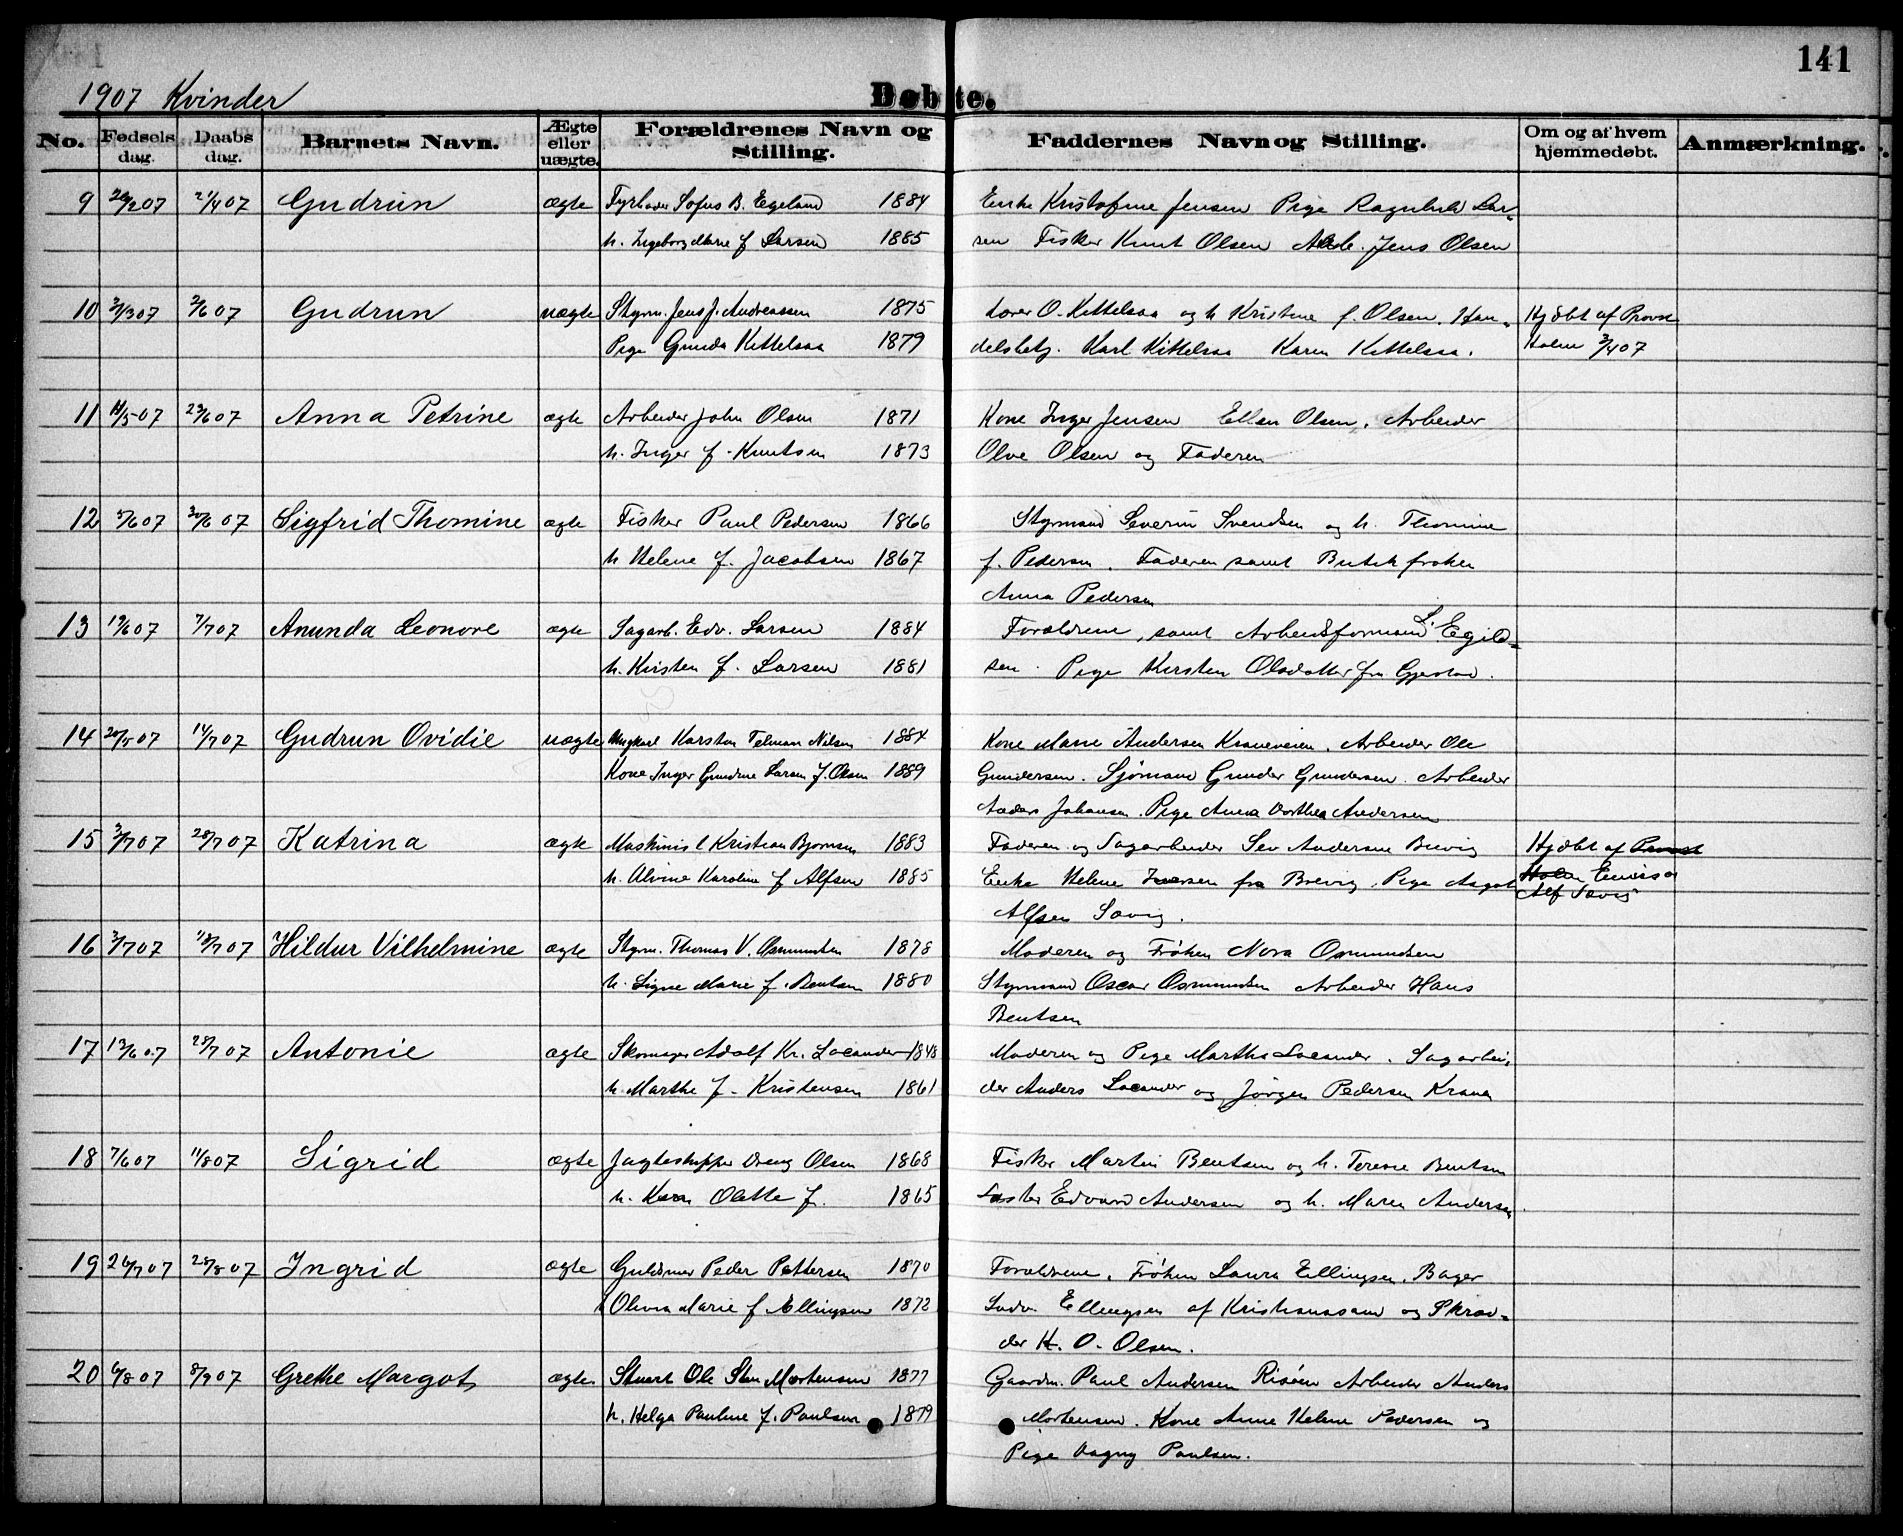 141
1907 Kvinder
Døbte.
No. Fødselsdag. Daabsdag. Barnets Navn. Ægte eller uægte. Forældrenes Navn og Stilling. Faddernes Navn og Stilling. Om og af hvem hjemmedøbt. Anmærkning.
9 26/2 07 21/4 07 Gudrun ægte Fyrbøder Sofus B. Egeland 1884 Enke Kristofine Jensen Pige Ragnhild Lar-
h. Ingeborg Marie f Larsen 1885 sen Fisker Knut Olsen Arb. Jens Olsen
10 2/3 07 2/6 07 Gudrun uægte Styrm. Jens J. Andreassen 1875 O. Kittelsaa og h Kristine f. Olsen. Han- Hjdbt af Provst
Pige Gunda Kittelsaa 1879 delsbetj. Karl Kittelsaa Karen Kittelsaa. Holm 2/4 07
11 11/5 07 23/6 07 Anna Petrine ægte Arbeider John Olsen 1871 Kone Inger Jensen Ellen Olsen, Arbeider
h. Inger f. Knutsen 1873 Olve Olsen og Faderen
12 5/6 07 30/6 07 Sigfrid Thomine ægte Fisker Paul Pedersen 1866 Styrmand Severin Svendsen og h. Thomine
h Helene f. Jacobsen 1867 f. Pedersen. Faderen samt Butikfrøken
Anna Pedersen
13 19/6 07 7/7 07 Anunda Leonore ægte Sagarb. Edv. Larsen 1884 Forældrene, samt Arbeidsformand L. Egild-
h. Kirsten f. Larsen 1881 sen. Pige Kirsten Olsdatter fra Gjerstad.
14 20/5 07 14/7 07 Gudrun Ovidie uægte Ungkarl Karsten Telman Nilsen 1884 Kone Marie Andersen Kraneveien. Arbeider Ole
Kone Inger Gundine Larsen f. Olsen 1889 Gundersen. Sjømand Gunder Gundersen. Arbeider
Anders Johansen. Pige Anna Dorthea Andersen
15 3/7 07 28/7 07 Katrina ægte Maskinist Kristian Bjørnsen 1883 Faderen og Sagarbeider Sev Andersen Brevig Hjdbt af Provst
h. Alvine Karoline f Alfsen 1885 Enke Helene Iversen fra Brevig. Pige Aagot Holm
Alfsen Søvig. Alf Søvig
16 3/7 07 28/7 07 Hildur Vilhelmine ægte Styrm. Thomas V. Osmundsen 1878 Moderen og Frøken Nora Osmundsen
h. Signe Marie f. Bentsen 1880 Styrmand Oscar Osmundsen Arbeider Hans
Bentsen
17 13/6 07 28/7 07 Antonie ægte Skomager Adolf Kr. Locander 1848 Moderen og Pige Martha Locander. Sagarbei-
h. Marthe f. Kristensen 1861 der Anders Locander og Jørgen Pedersen Krana
18 7/6 07 11/8 07 Sigrid ægte Jagteskipper Dreng Olsen 1868 Fisker Martin Bentsen og h. Terese Bentsen
h. Karen Olette f. 1865 Edvard Andersen og h. Maren Andersen.
19 26/7 07 28/8 07 Ingrid ægte Guldsmed Peder Pettersen 1870 Forældrene, Frøken Laura Ellingsen. Bager
Olivia Marie f Ellingsen 1872 Ludv. Ellingsen af Kristianssand og Skræd-
der H. O. Olsen.
20 6/8 07 8/9 07 Grethe Margot ægte Stuert Ole Mortensen 1877 Gaardm. Paul Andersen Risøen Arbeider Anders
h. Helga Pauline f. Paulsen 1879 Mortensen. Kone Anne Helene Pedersen og
Pige Dagny Paulsen.